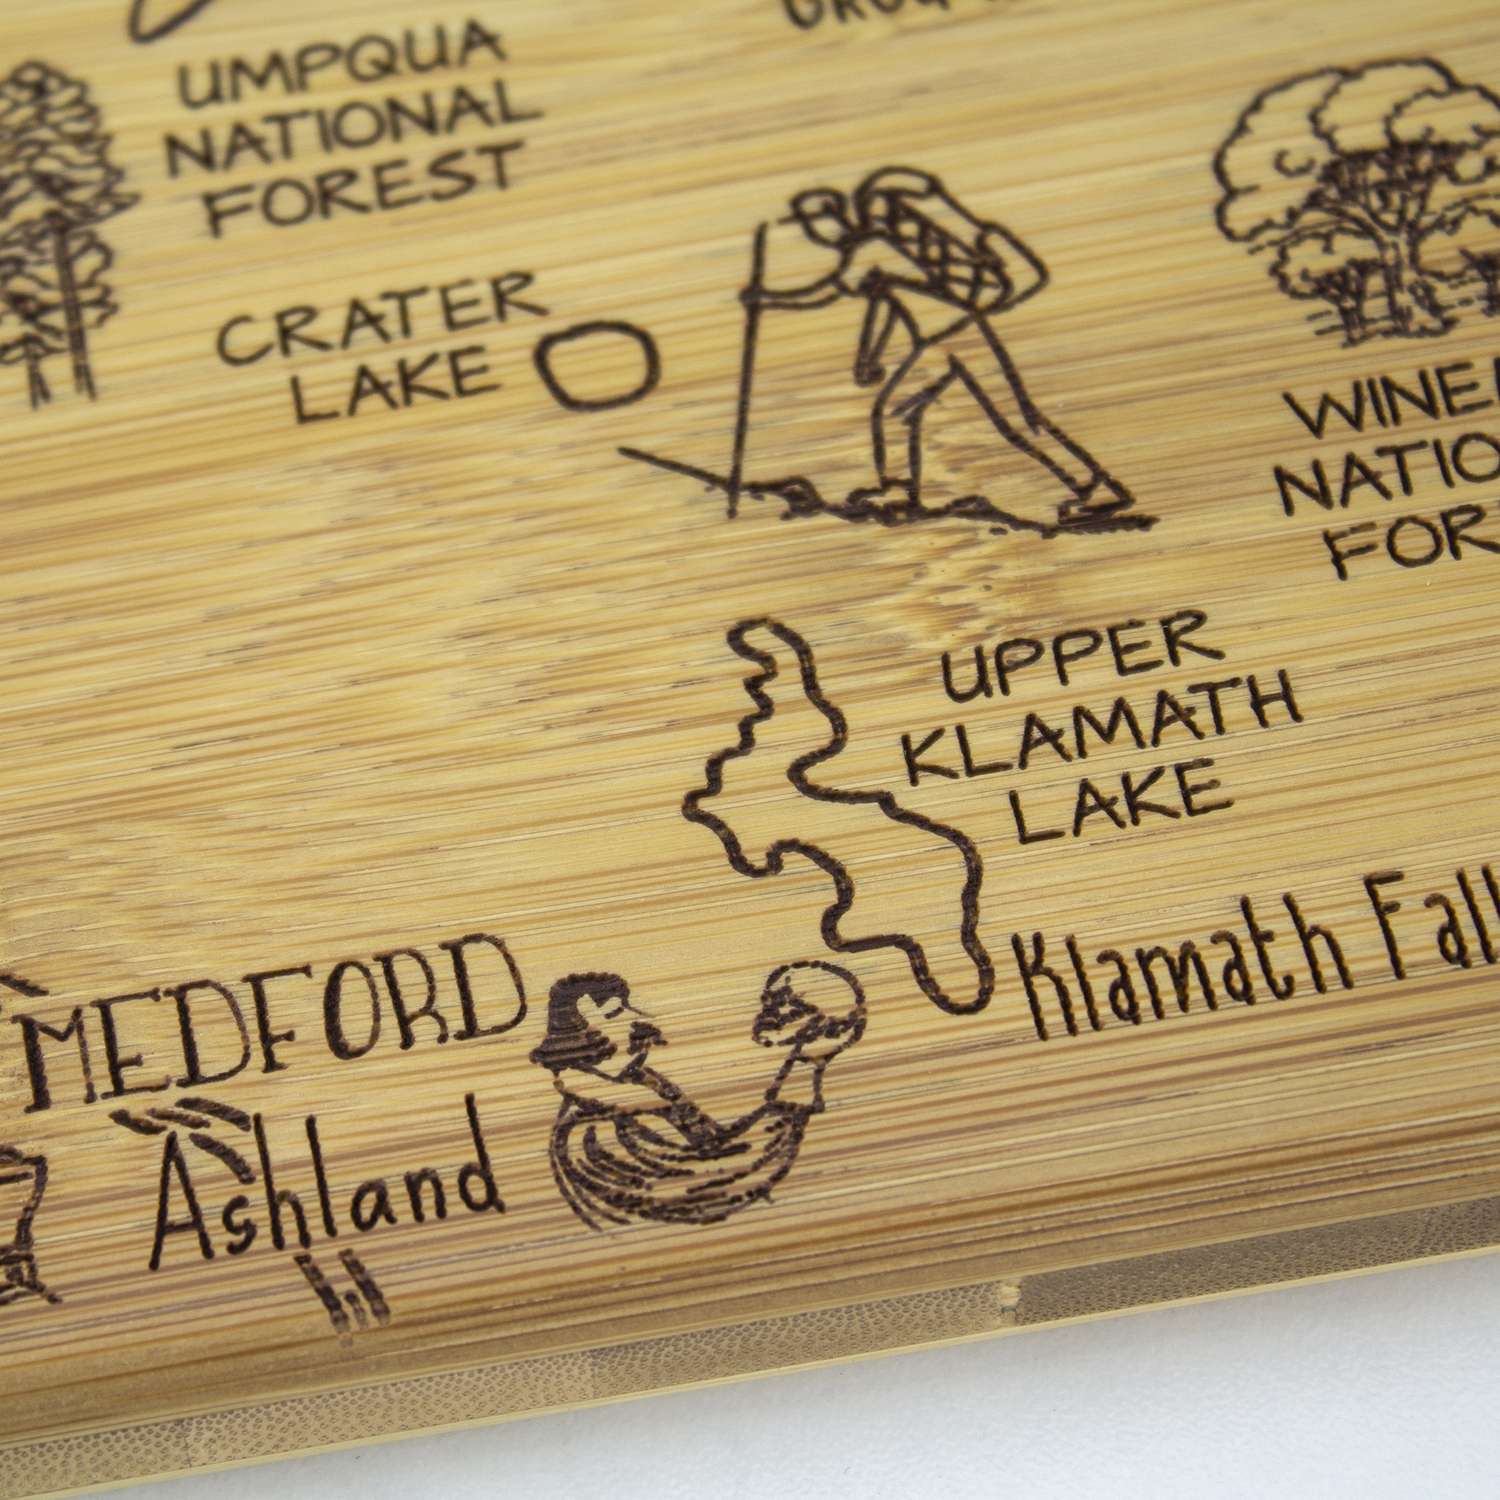 UMPQUA
NATIONAL
FOREST
CRATER
LAKE
NATIO
FOR
UPPER
KLAMATH
LAKE
Klamath Fall
MEDFORD
Ashland